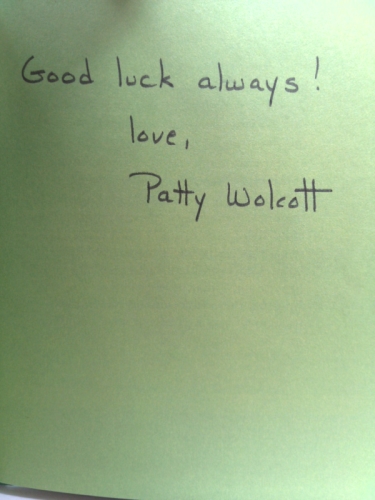 Good luck always!
love,
Patty Wolcott